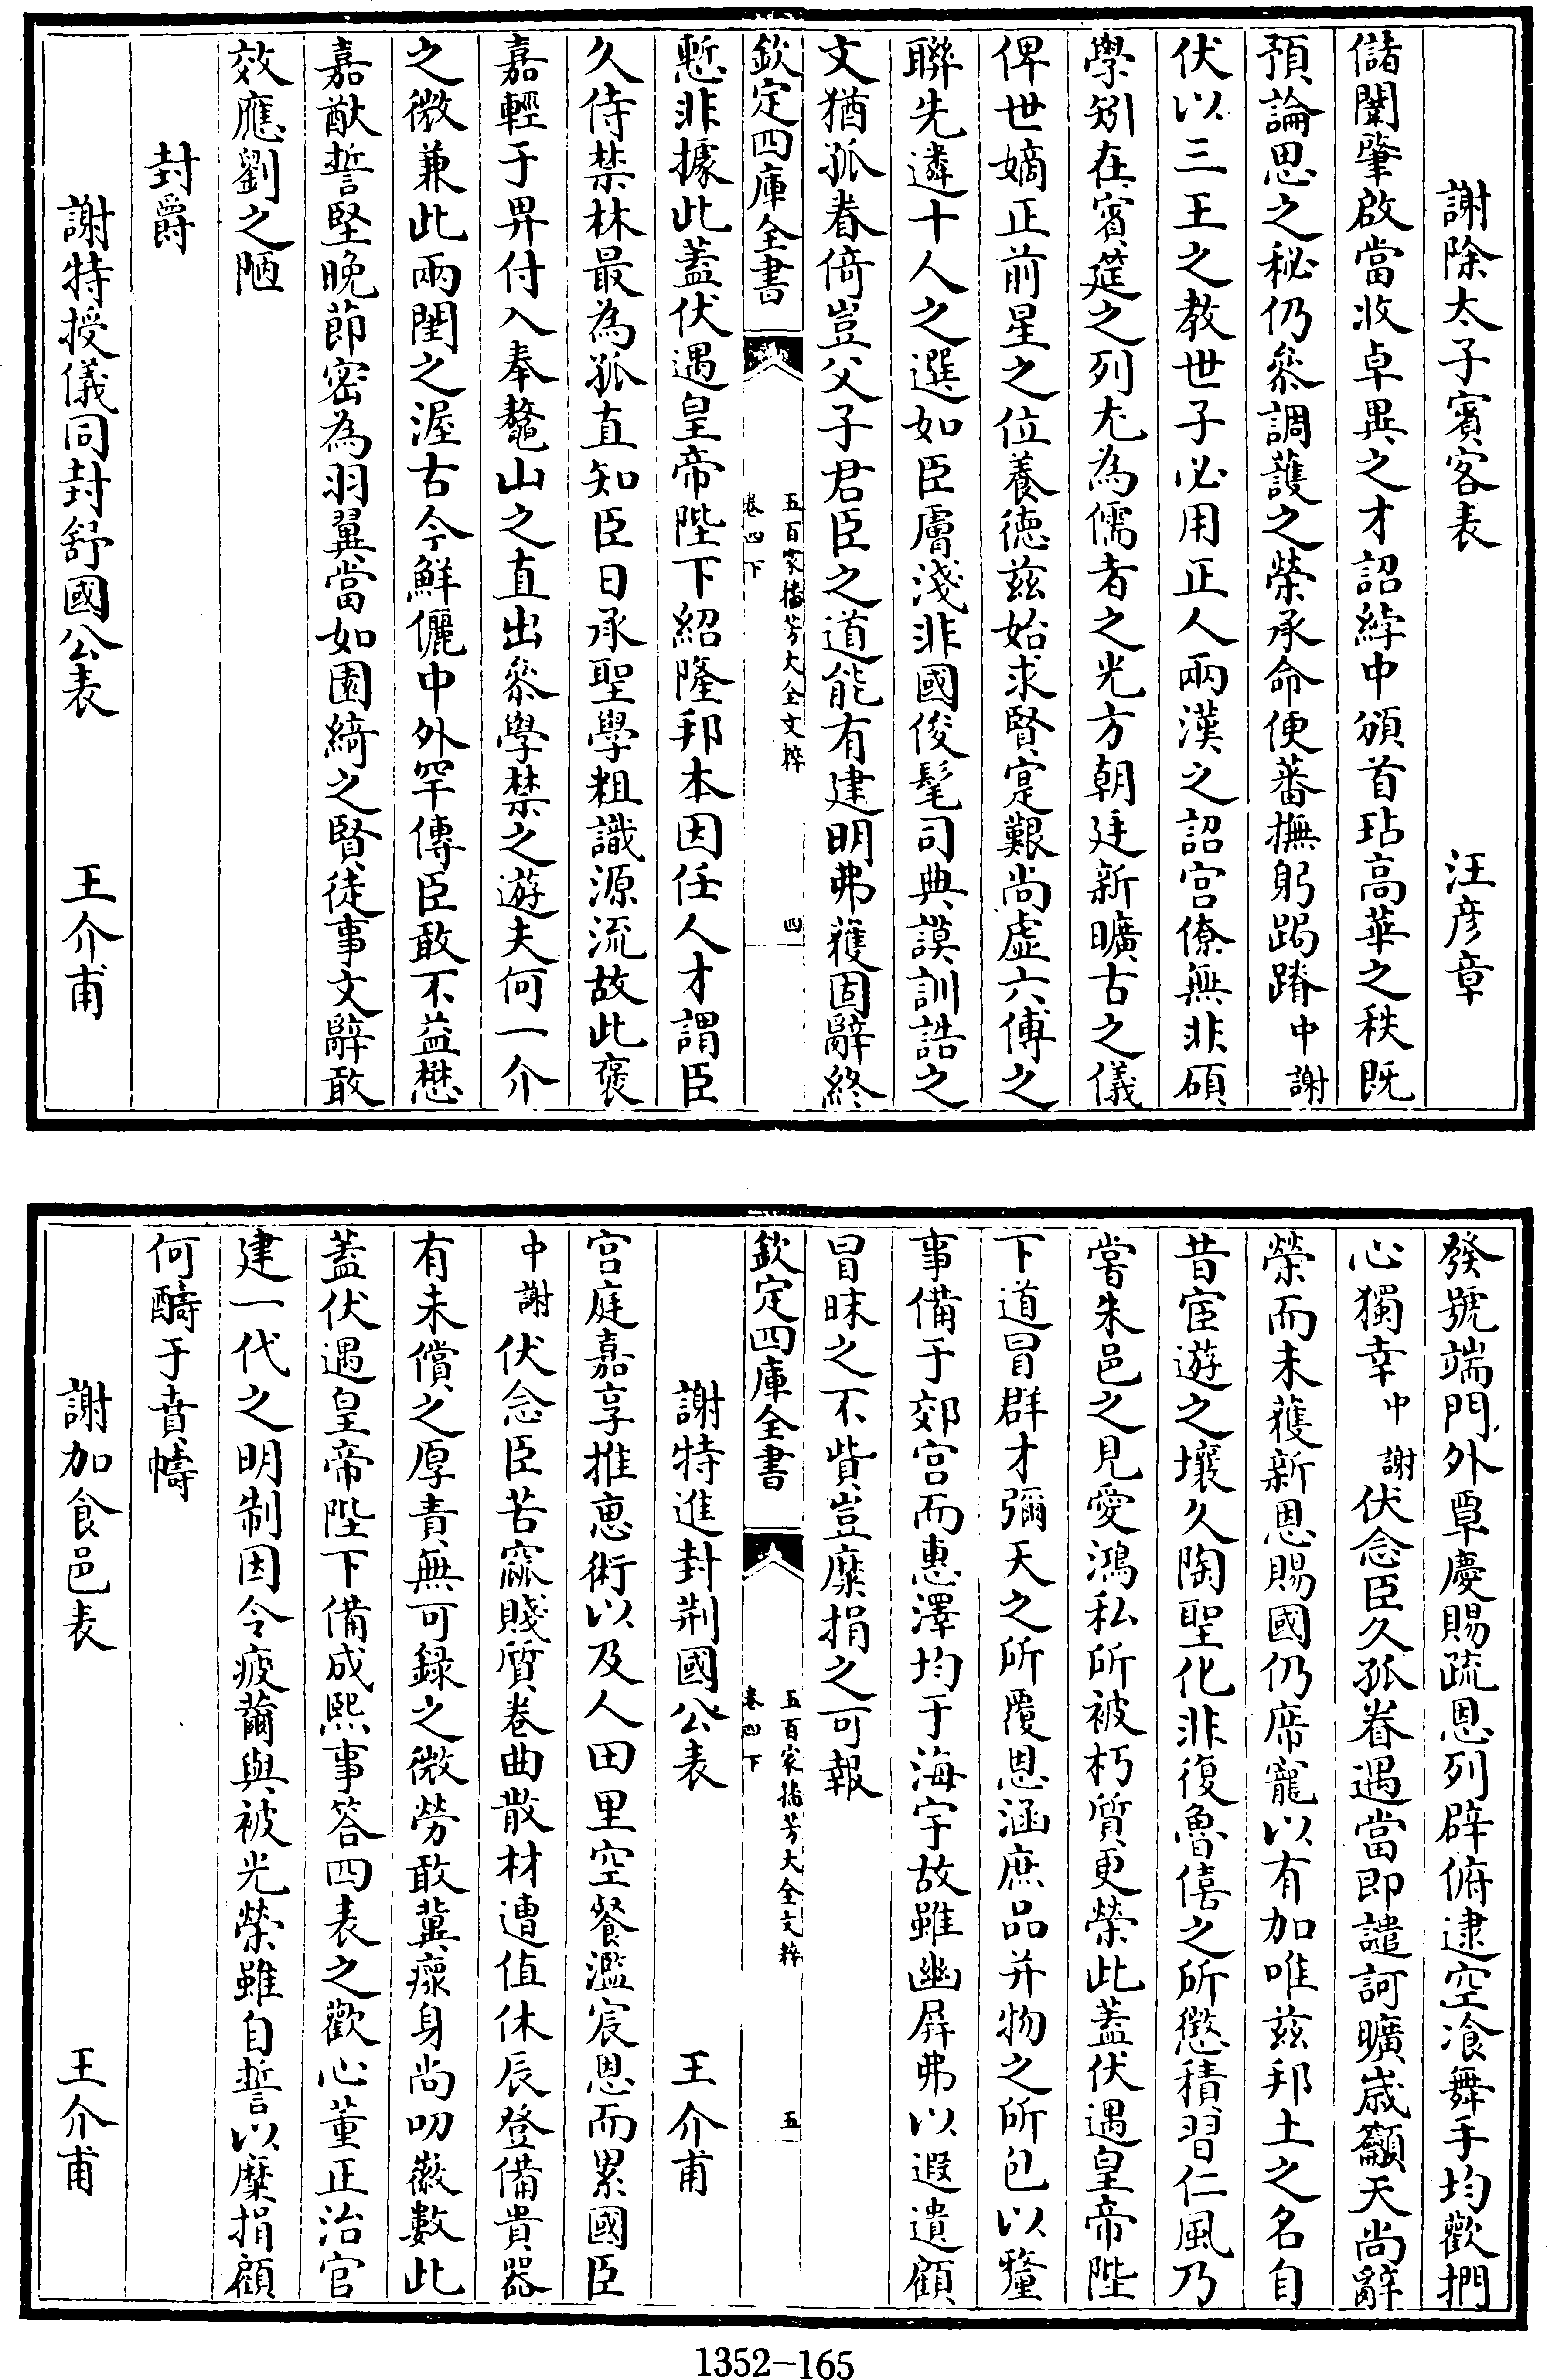 謝除太子賓客表　汪彦章
儲闈肇啟當收卓異之才詔綍中頒首玷高華之秩既
預論思之秘仍叅調護之榮承命便蕃撫躬跼蹐中謝
伏以三王之教世子必用正人兩漢之詔宫僚無非碩
學矧在賓筵之列尤為儒者之光方朝廷新曠古之儀
俾世嫡正前星之位養徳兹始求賢寔艱尚虛六傅之
聯先遴十人之選如臣膚淺非國俊髦司典謨訓誥之
文猶孤眷倚豈父子君臣之道能有建明弗獲固辭終
欽定四庫全書　五百家播芳大全文粹　卷四下　四
慙非據此蓋伏遇皇帝陛下紹隆邦本因任人才謂臣
久侍禁林最為孤直知臣日承聖學粗識源流故此褒
嘉輕于畀付入奉鼇山之直出叅學禁之遊夫何一介
之微兼此兩闈之渥古今鮮儷中外罕傳臣敢不益懋
嘉猷誓堅晚節密為羽翼當如園綺之賢徒事文辭敢
效應劉之陋
封爵
謝特授儀同封舒國公表　王介甫
發號端門外覃慶賜疏恩列辟俯逮空飡舞手均歡捫
心獨幸中謝伏念臣久孤眷遇當即譴訶曠歲籲天尚辭
榮而未獲新恩賜國仍席寵以有加唯兹邦土之名自
昔宦遊之壤久陶聖化非復魯僖之所懲積習仁風乃
嘗朱邑之見愛鴻私所被朽質更榮此蓋伏遇皇帝陛
下道冒群才彌天之所覆恩涵庶品并物之所包以釐
事備于郊宫而惠澤均于海宇故雖幽屏弗以遐遺顧
冒昧之不貲豈糜捐之可報
欽定四庫全書　五百家播芳大全文粹　卷四下　五
謝特進封荆國公表　王介甫
宫庭嘉享推恵術以及人田里空餐濫宸恩而累國臣
中謝伏念臣苦窳賤質卷曲散材遭值休辰登備貴器
有未償之厚責無可録之微勞敢冀瘝身尚叨徽數此
蓋伏遇皇帝陛下備成熙事答四表之歡心董正治官
建一代之明制因令疲薾與被光榮雖自誓以糜捐顧
何酬于燾幬
謝加食邑表　王介甫
1352-165